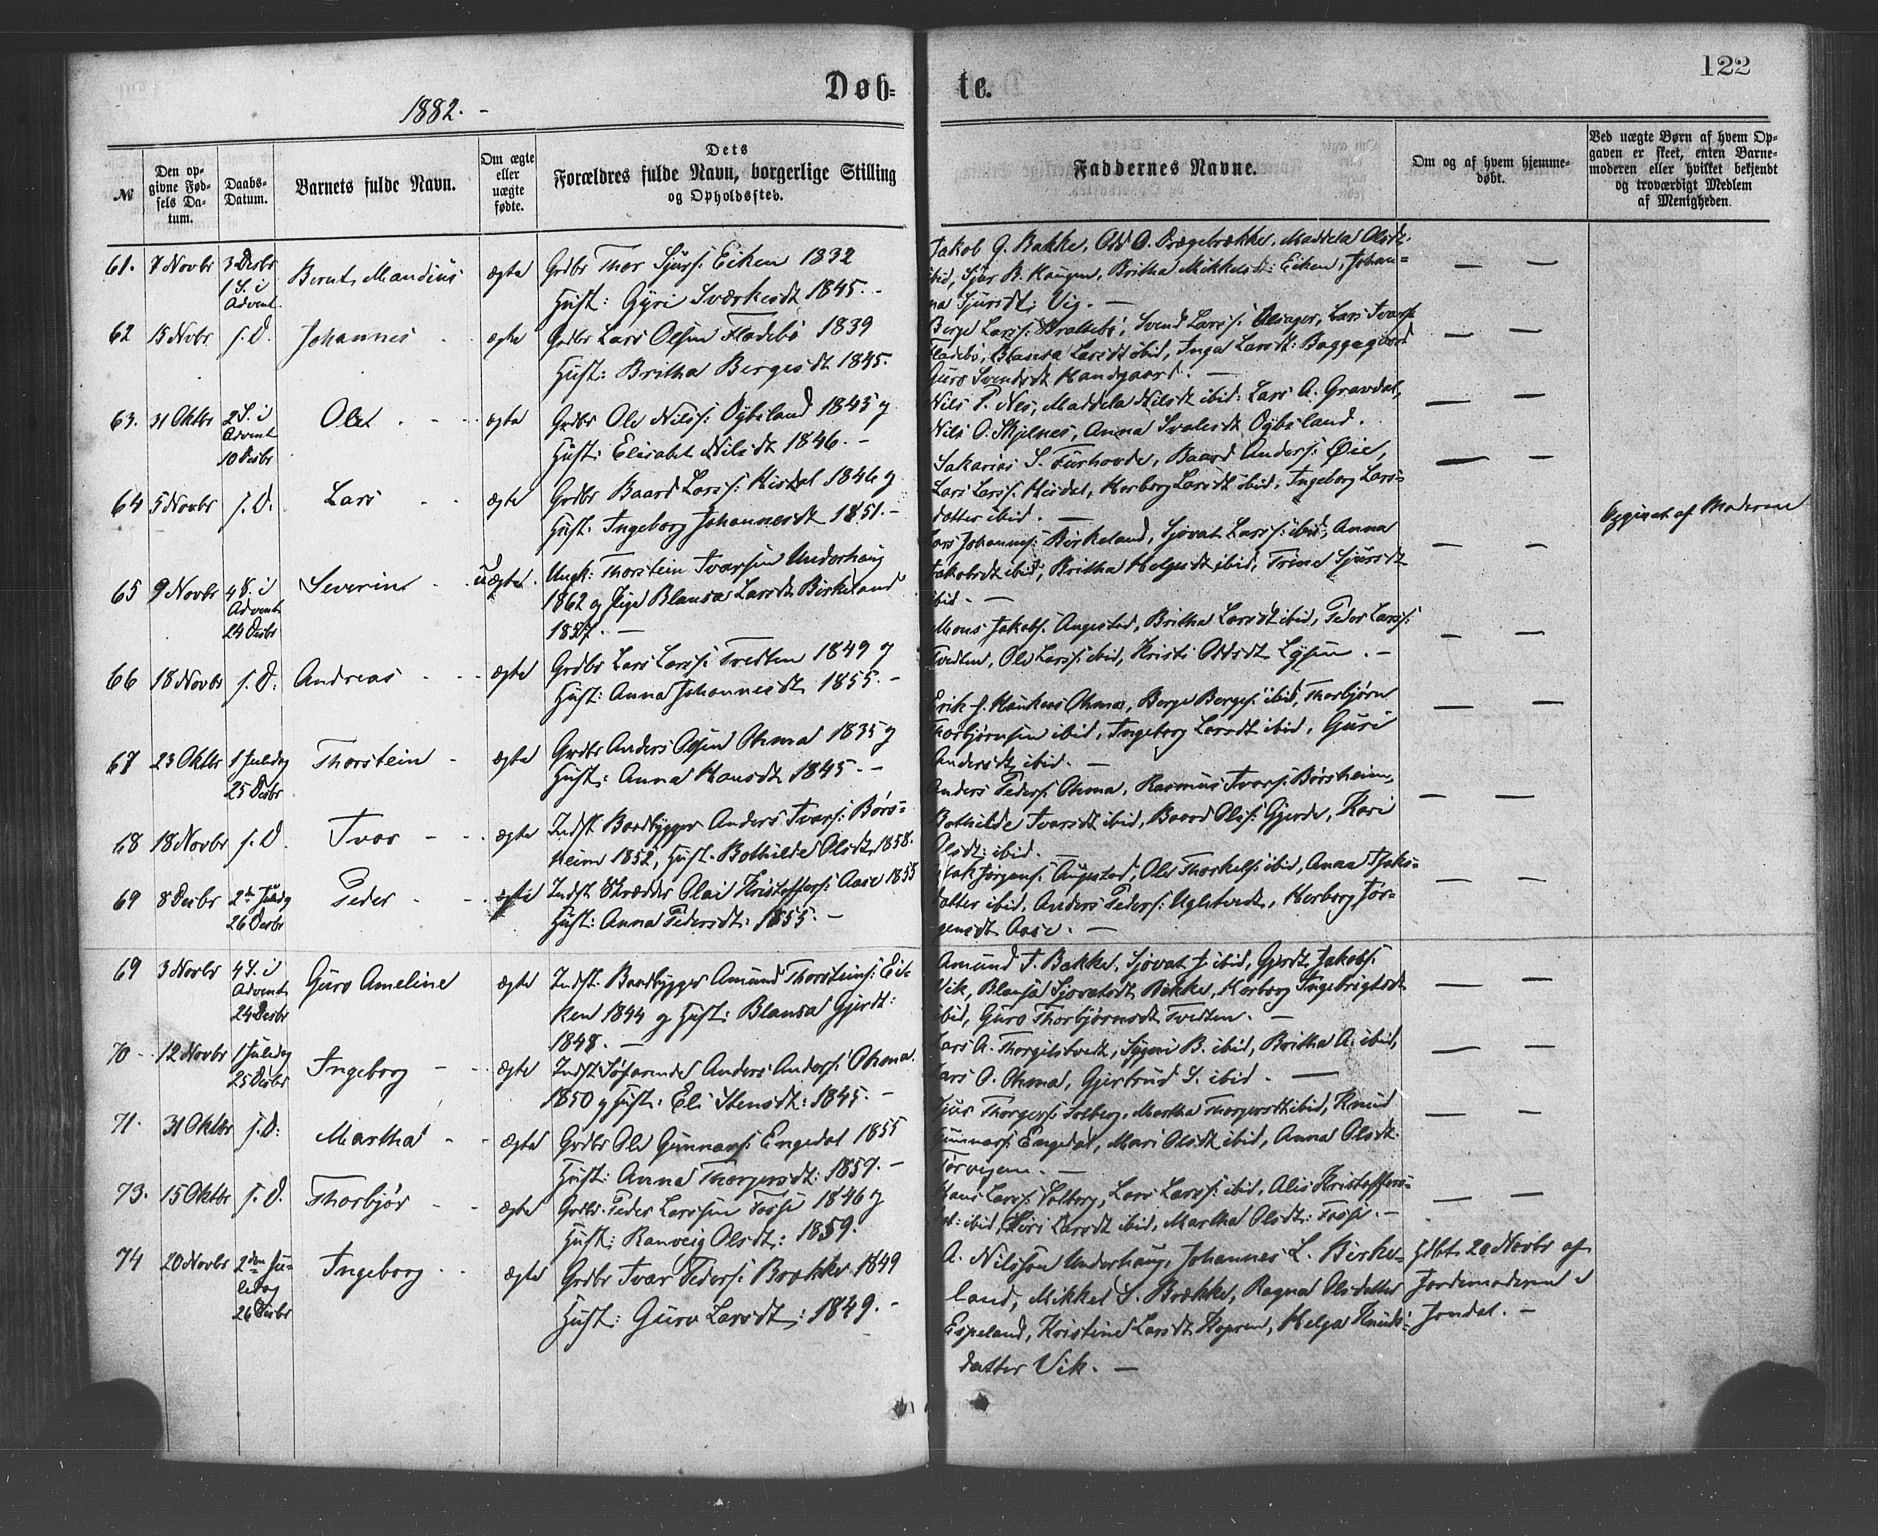 Døb=
te.
122
1882. -
№
Den op-
givne Fød-
sels Da-
tum.
Daabs-
Datum.
Barnets fulde Navn.
Om ægte
eller
uægte
fødte.
Dets
Forældres fulde Navn, borgerlige Stilling
og Opholdssted.
Faddernes Navne.
Om og af hvem hjemme-
døbt.
Ved uægte Børn af hvem Op-
gaven er skeet, enten Barne-
moderen eller hvilket bekjendt
og troværdigt Medlem
af Menigheden.
61. 7 Novbr 3 Decbr
1 S. i
Advent
Bernt Mandius ægte Grdbr Thor Sjurs: Eiken 1832
Hust: Gyri Sværkesdt 1845. -
Jakob G. Bakke, Odd O. Drægebrække, Maddela Olsdt.
ibid, Sjur B. Haugen, Britha Mikkelsdt: Eiken, Johan=
na Sjursdt: Vig. —
62 15 Novbr s. D. Johannes - ægte Grdbr Lars Olsen Fladebø 1839
Hust: Britha Bergesdt 1845.
Berge Larss: Svend Larss: Lars Ivarss
Fladebø, Blansa Larsdt ibid, Inga Larsdt:
Guro Svendsdt Handgaard. —
63. 31 Oktbr 2 S. i
Advent
10 Decbr
Olet - ægte Grdbr Ole Nilss: Øybsland 1845 og
Hust: Elisabet Nilsdt 1846. -
Nils P. Nes, Maddela Nilsdt ibid. Lars A. Gravdal,
Nils O. Skjelnes, Anna Øybsland.
64 5 Novbr s. D. Lars - ægte Grdbr Baard Larss: Hisdal 1846 og
Hust. Ingeborg Johannesdt 1851. -
Sakarias S. Furhovde, Baard Anders: Øie,
Lars Larss: Hisdal, Herborg Larsdt ibid, Ingeborg Lars=
datter ibid. —
65 9 Novbr 4 S. i
Advent
24 Decbr
Severine - uægte. Ungk: Thorstein Ivarsen Underhaug
1862 og Pige Blansa Larsdt Birkeland
1857. —
Lars Johanness: Birkeland, Sjovat Larss: ibid, Anna
Jakobsdt ibid, Britha Helgesdt ibid, Trine Sjursdt
ibid. —
Opgivet af Moderen
66 18 Novbr s. D. Andreas - ægte Grdbr Lars Larss: Tvedten 1849 og
Hust: Anna Johannesdt 1855. -
Mons Jakobs. Augestad, Britha Larsdt ibid, Peder Larss:
Tvedten, Ole Larss: ibid, Kristi Oddsdt Løsen. -
67 23 Oktbr 1 Juledag
25 Decbr
Thorstein - ægte Grdbr Anders Olsen Ohma 1835 og
Hust: Anna Hansdt 1845. -
Erik J. Haukaas Ohma, Berge Berges: ibid, Thorbjørn
Thorbjørnsen ibid, Ingeborg Larsdt ibid, Guri
Andersdt ibid. —
68 18 Novbr s. D. Ivar - ægte Indst Baadbygger Anders Ivars: Børs=
heim 1852, Hust. Bothilde Olsdt. 1858.
Anders Peders: Ohma, Rasmus Ivars: Børsheim,
Bothilde Ivarsdt ibid, Baard Ols: Gjerde, Kari
Olsdt: ibid.
69 8 Decbr 2den Juledag
26 Decbr
Peder - ægte Indst Skrædder Olai Kristoffers: Aase 1855
Hust: Anna Pedersdt: 1855. -
Jørgens: Augestad, Ole Thorkels: ibid, Anna
datter ibid, Anders Peders: Herborg Jør=
gensdt Aase. —
69 3 Novbr 4 S. i
Advent
24 Decbr
Guro Ameline ægte Indst. Baadbygger Amund Thorsteins: Ei=
ken 1844 og Hust: Blansa Gjerdt:
1848. —
Amund T. Bakke, Sjovat J. ibid, Gjerdt Jakobs:
Vik, Blansa Sjovatsdt Bakke, Herborg Ingebrigtsdt
ibid, Guro Thorbjørnsdt Tvedten. —
70 - 12 Novbr 1 Juledag
25 Decbr
Ingeborg - ægte Indst Søfarende Anders Anders: Ohma.
1850 og Hust: Eli Stensdt: 1845. -
Lars A. Thorgilstvedt, Sygni B. ibid, Britha A. ibid,
Lars O. Ohma, Gjertrud S. ibid. —
71. 31 Oktbr s. D: Martha - ægte Grdbr Ole Gunnars: Engedal 1855
Hust: Anna Thorgersdt: 1859. -
Sjur Thorgers: Solberg, Martha Thorgersdt ibid, Knud
Gunnars: Engedal, Mari Olsdt ibid, Anna Olsdt:
73. 15 Oktbr s. D. Thorbjør - ægte Grdbr. Peder Larssen Fosse 1846 og
Hust: Ranveig Olsdt: 1859.
Hans Larss: Solberg, Lars Larss: ibid, Alis Kristoffers=
dt: ibid, Larsdt ibid, Martha Olsdt: Fosse. -
74 20 Novbr 2den Ju=
ledag
26 Decbr
Ingeborg - ægte Grdbr Ivar Peders: Brække 1849
Hust: Guro Larsdt: 1849. -
A. Nilssen Underhaug, Johannes L. Birke=
land, Mikkel S. Brække, Ragna Olsdatter
Espeland, Kristine Larsdt Hopren, Helga Knuds=
datter Vik. —
Hdbt 20 Novbr af
Jordemoderen i
Jondal. -